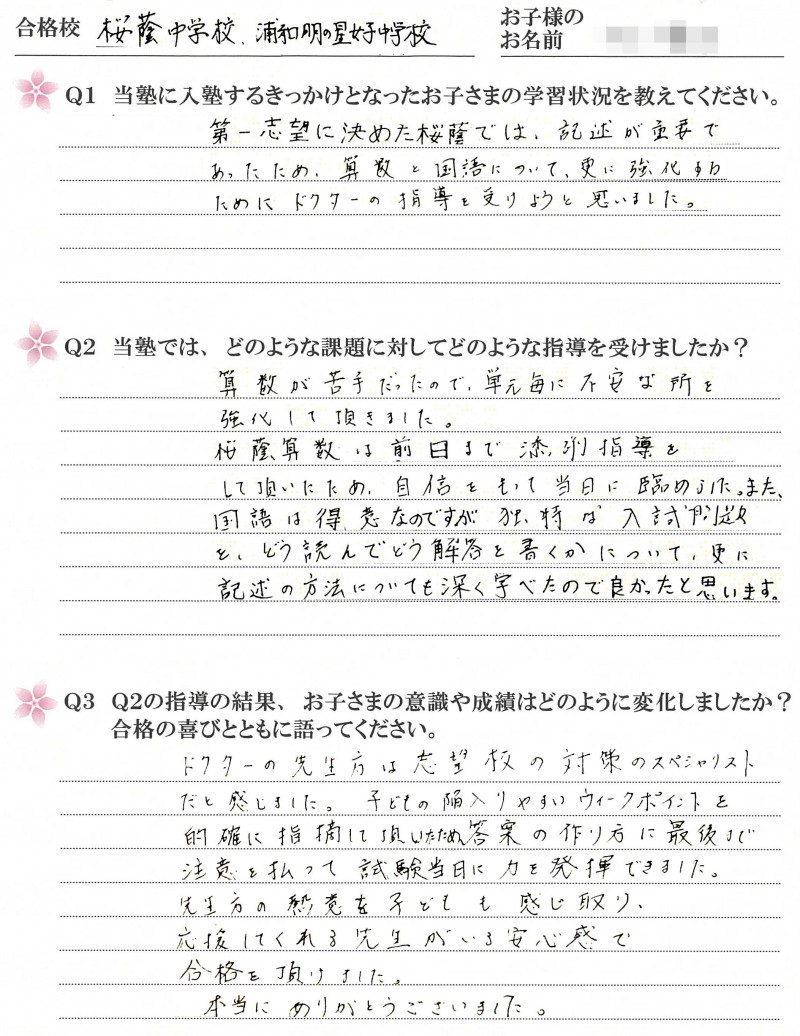 合格校 桜蔭中学校、浦和明の星女子中学校
お子様の
お名前
Q1 当塾に入塾するきっかけとなったお子さまの学習状況を教えてください。
第一志望に決めた桜蔭では、記述が重要で
あったため、算数と国語について、更に強化する
ためにドクターの指導を受けようと思いました。
Q2 当塾では、どのような課題に対してどのような指導を受けましたか？
算数が苦手だったので、単元毎に不安な所を
強化して頂きました。
桜蔭算数は前日まで添削指導を
して頂いたため、自信をもって当日に臨めました。また、
国語は得意なのですが独特な入試問題
を、どう読んでどう解答を書くかについて、更に
記述の方法についても深く学べたので良かったと思います。
Q3 Q2の指導の結果、お子さまの意識や成績はどのように変化しましたか？
合格の喜びとともに語ってください。
ドクターの先生方は志望校の対策のスペシャリスト
だと感じました。子どもの陥入りやすいウィークポイントを
的確に指摘して頂いたため、答案の作り方に最後まで
注意を払って試験当日に力を発揮できました。
先生方の熱意を子どもも感じ取り、
応援してくれる先生がいる安心感で
合格を頂けました。
本当にありがとうございました。